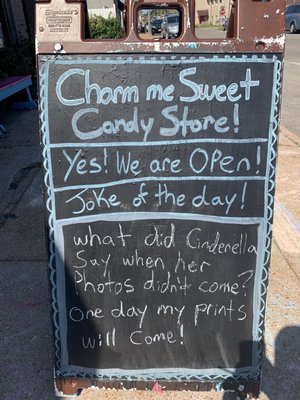 Charm me Sweet
Candy Store!
Yes! We are Open!
Joke of the day!
what did Cinderella
Say when her
Photos didn't come?
One day my prints
will Come!